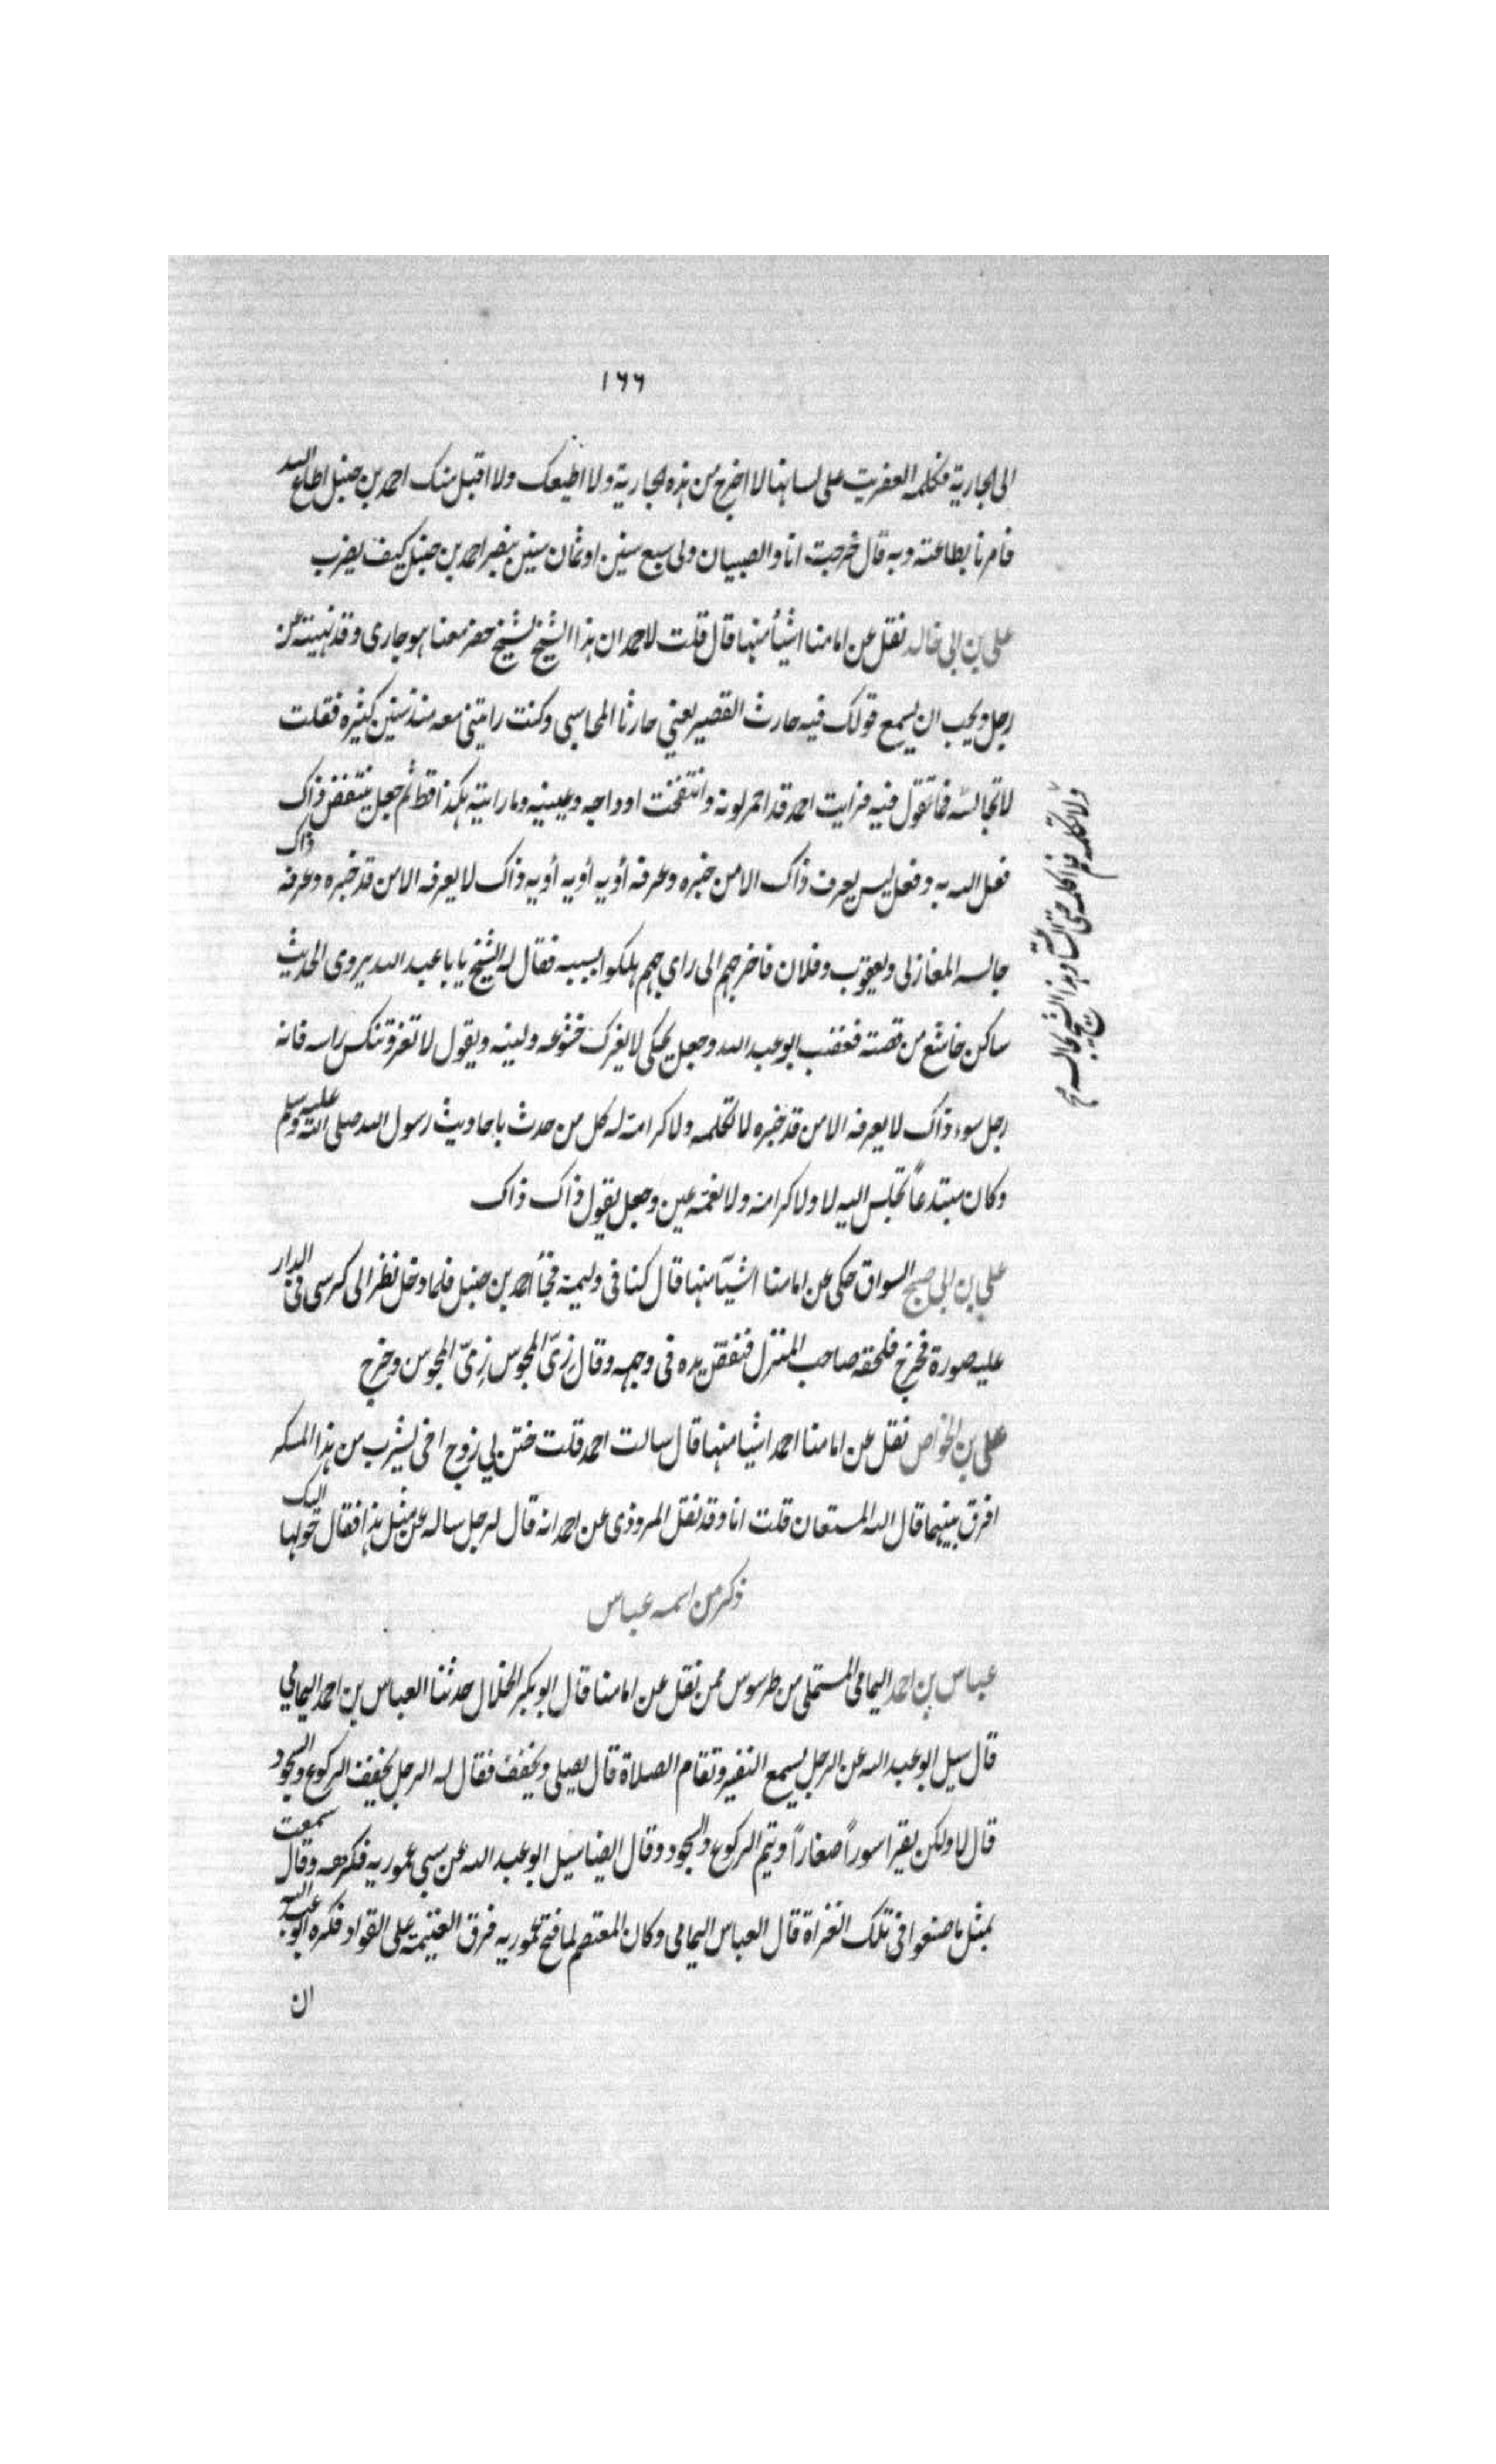 ١٦٦
الى الجارية فكلمه العفريت على لسانها لا اخرج من هذه الجارية ولا اطيعك ولا اقبل منك احمد بن حنبل اطاع الله
فامرنا بطاعته وبه قال خرجت انا والصبيان ولى سبع سنين او ثمان سنين نبصر احمد بن حنبل كيف يضرب
على بن ابى خالد نقل عن امامنا اشيأ منها قال قلت لاحمد ان هذا الشيخ لشيخ حضر معنا هو جارى وقد نهيته عن
رجل ويحب ان يسمع قولك فيه حارث القصير يعني حارثا المحاسبى وكنت رايتنى معه منذ سنين كثيره فقلت
لا تجالسه فما تقول فيه فرايت احمد قد احمر لونه وانتفخت اوداجه وعينيه وما رايته هكذا قط ثم جعل ينتفض ذاك
فعل الله به وفعل ليس يعرف ذاك الا من خبره وعرفه أويه أويه أويه ذاك لا يعرفه الا من قد خبره وعرفه ذاك
جالسه المغازلى ويعقوب وفلان فاخرجهم الى راي جهم هلكوا بسببه فقال له الشيخ يا با عبد الله يروى الحديث
ساكن خاشع من قصته فغضب ابو عبد الله وجعل يحكى لا يغرك خشوعه ولينه ويقول لا تغتر وتنكس راسه فانه
رجل سوء ذاك لا يعرفه الا من قد خبره لا تكلمه ولا كرامة له كل من حدث باحاديث رسول الله صلى الله عليه وسلم
وكان مبتدعاً تجلس اليه لا ولا كرامة ولا نعمة عين وجعل يقول ذاك ذاك
على بن ابى صبح السواق حكى عن امامنا اشيآ منها قال كنا فى وليمة فجأ احمد بن حنبل فلما دخل نظر الى كرسى فى الدار
عليه صورة فخرج فلحقه صاحب المنزل فنفض يده فى وجهه وقال زىّ المجوس زىّ المجوس وخرج
على بن الخواص نقل عن امامنا احمد اشيا منها قال سالت احمد قلت ختن لي زوج اختى يشرب من هذا المسكر
افرق بينهما قال الله المستعان قلت انا وقد نقل المروذى عن احمد انه قال لرجل ساله عن مثل هذا فقال حولها اليك
ذكر من اسمه عباس
عباس بن احمد اليمامى المستملى من طرسوس ممن نقل عن امامنا قال ابو بكر الخلال حدثنا العباس بن احمد اليمامي
قال سيل ابو عبد الله عن الرجل يسمع النفير وتقام الصلاة قال يصلى ويخفف فقال له الرجل يخفف الركوع والسجود
قال لا ولكن يقرا سوراً صغاراً ويتم الركوع والسجود وقال ايضا سيل ابو عبد الله عن سبي عموريه فكرهه وقال سمعت
بمثل ما صنعوا فى تلك الغزاة قال العباس اليمامى وكان المعتصم لما فتح عموريه فرق الغنيمة على القواد فكره ابو عبد الله
ان
ولا تكلمه فلم اكلمه حتى الساعة وهذا الشيخ يجالسه